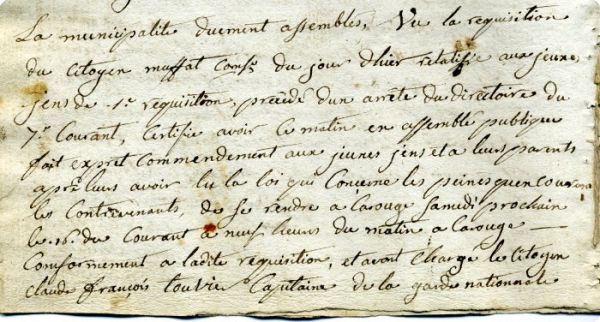 La municipalite duement assembles, Vu la requisition
du Citoyen muffat Comse. du jour dhier relatifie aux jeunes
jens de 1e. requisition, précédé dun arrète du directoire du
7e. Courant, Certifie avoir ce matin en assemble publique
fait expret Commendement aux jeunes jens et a leurs parents
apres leurs avoir lu la loi qui Concerne les peines quencourent
les Contrevenants, de se rendre a Carouge Samedi prochain
le .16. du Courant à neuf heures du matin a Carouge —
Conformement a ladite requisition, et avont Chargé le Citoyen
Claude françois touvié Capitaine de la garde nationnale